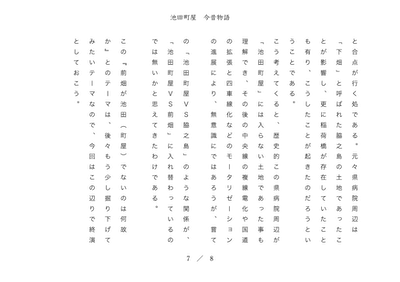 池田町屋　今昔物語
と合点が行く処である。元々県病院周辺は
「下畑」と呼ばれた脇之島の土地であったこ
とが影響し、更に稲荷橋が存在していたこと
も有り、こうしたことが起きたのだろうとい
うことである。
こう考えてくると、歴史的この県病院周辺が
「池田町屋」には入らない土地であった事も
理解でき、その後の中央線の複線電化や国道
の拡張と四車線化などのモータリゼーション
の進展により、無意識にではあろうが、嘗て
の「池田町屋ＶＳ脇之島」のような関係が、
「池田町屋ＶＳ前畑」に入れ替わっているの
では無いかと思えてきたわけである。
この『前畑が池田（町屋）でないのは何故
か』とのテーマは、後々もう少し掘り下げて
みたいテーマなので、今回はこの辺りで終演
としておこう。
7 ／ 8